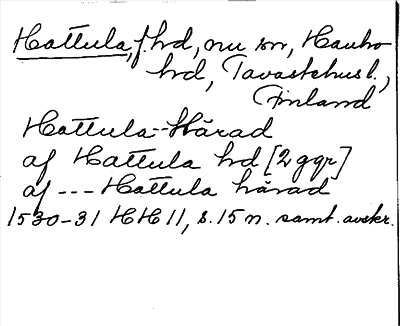 Hattula, f. hd, nu sn, Hauho
hd, Tavastehus l.,
Finland
Hattula-Härad
af Hattula hd [2 ggr]
af --- Hattula härad
1530-31 HH 11, s. 15 n. samt. avskr.